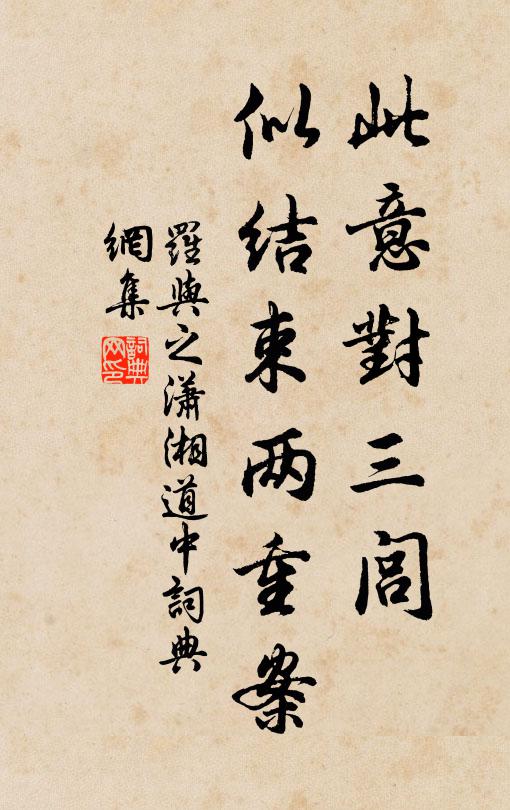 此意對三閭
似結束两重案
羅與之瀟湘道中詞典
網集
詞典
网印